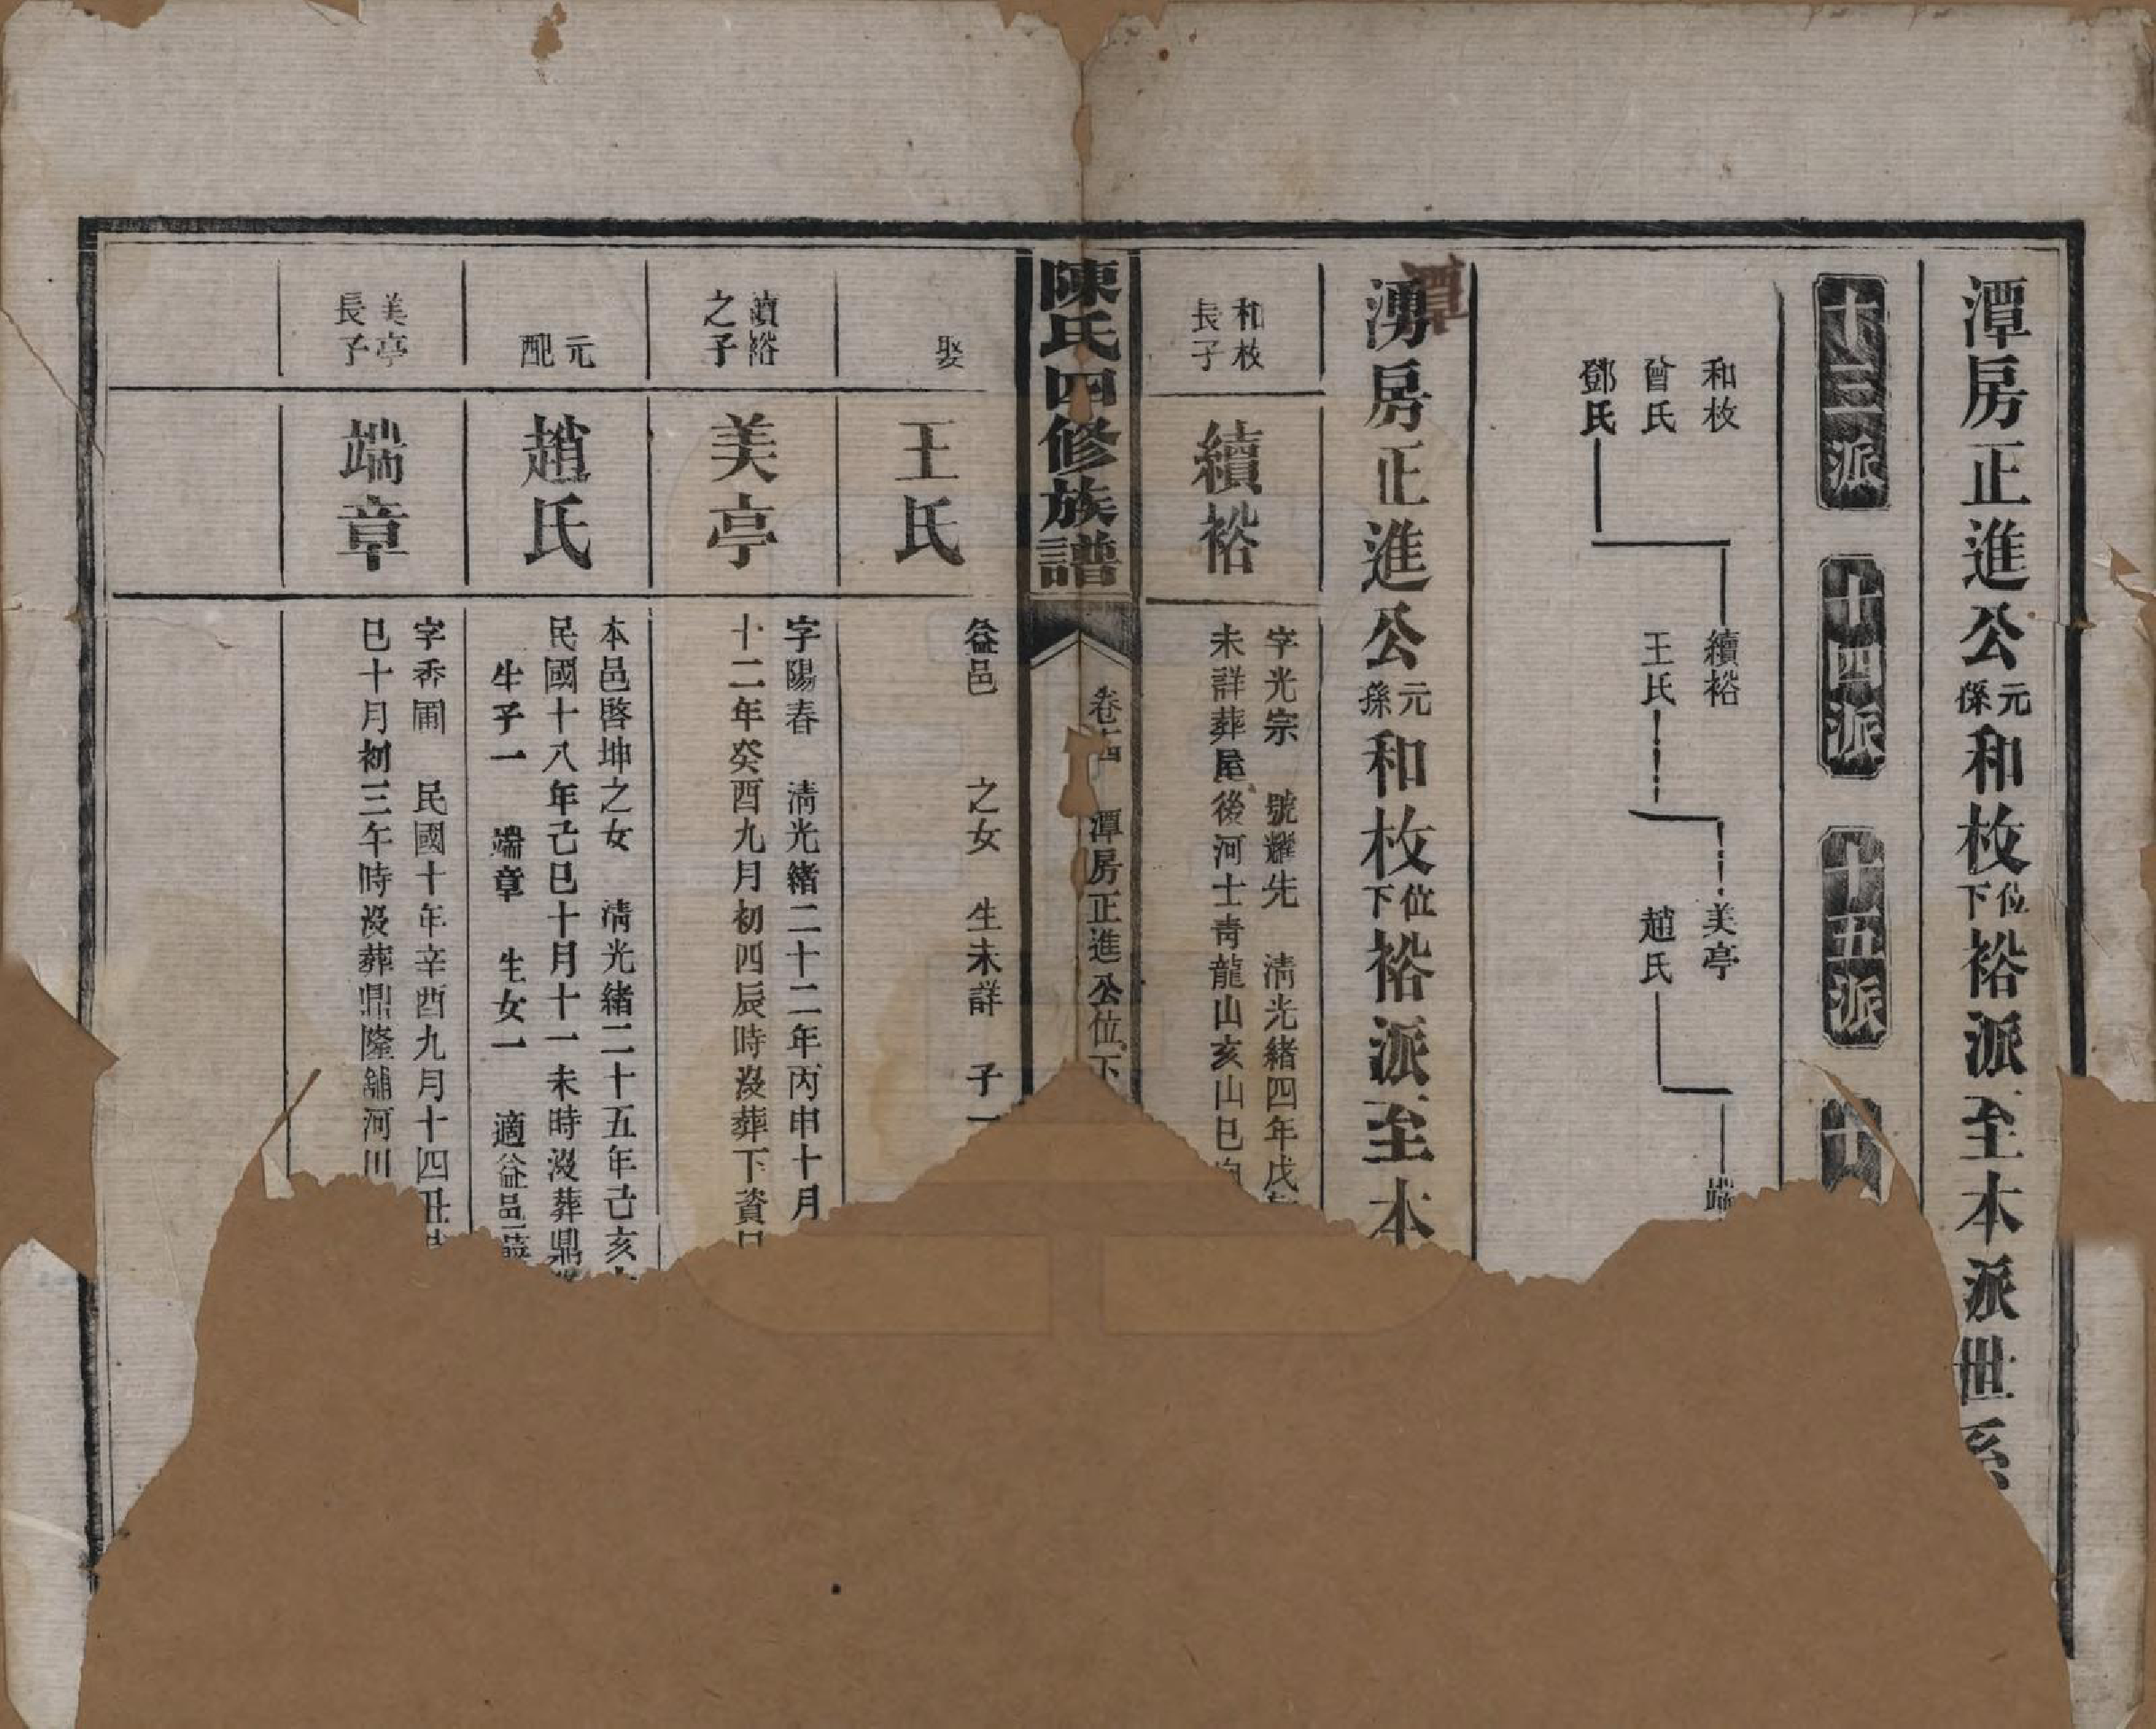 潭房正進公元孫和枚位下裕派至本派世系
十三派 十四派 十五派
和枚
曾氏
鄧氏
續裕
王氏
美亭
趙氏
端
湧房正進公元孫和枚位下裕派至本
潭
和枚長子
續裕
字光宗 號耀先 清光緒四年戊
未詳葬屋後河士青龍山亥山巳向
陳氏四修族譜
潭房正進公位下
娶
王氏
益邑 之女 生未詳 子一
續裕之子
美亭
字陽春 清光緒二十二年丙申十月
十二年癸酉九月初四辰時沒葬下資口
元配
趙氏
本邑啓坤之女 清光緒二十五年己亥
民國十八年己巳十月十一未時沒葬鼎
生子一 端章 生女一 適益邑
美亭長子
端章
字香圃 民國十年辛酉九月十四丑
巳十月初三午時沒葬鼎隆舖河川